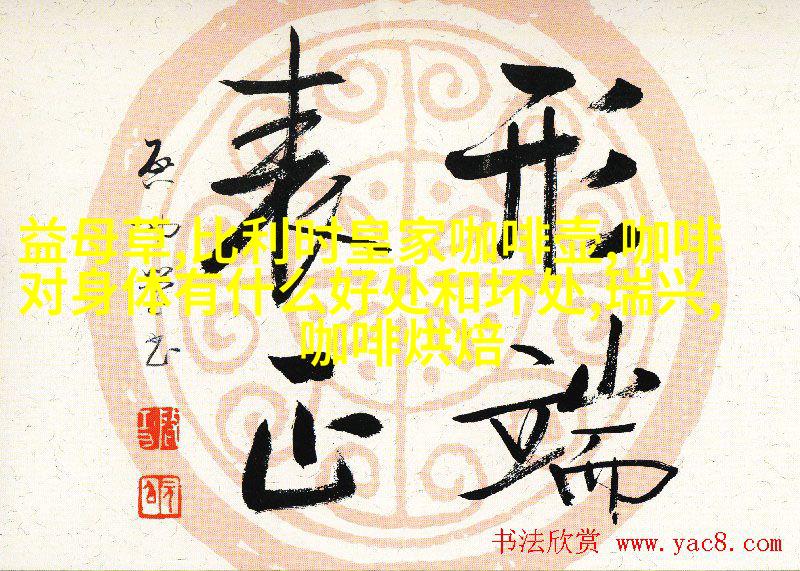 形端
表正
益母草,比利时皇家咖啡壶,咖啡
对身体有什么好处和坏处,瑞兴,
咖啡烘焙
书法欣赏 www.yac8.com